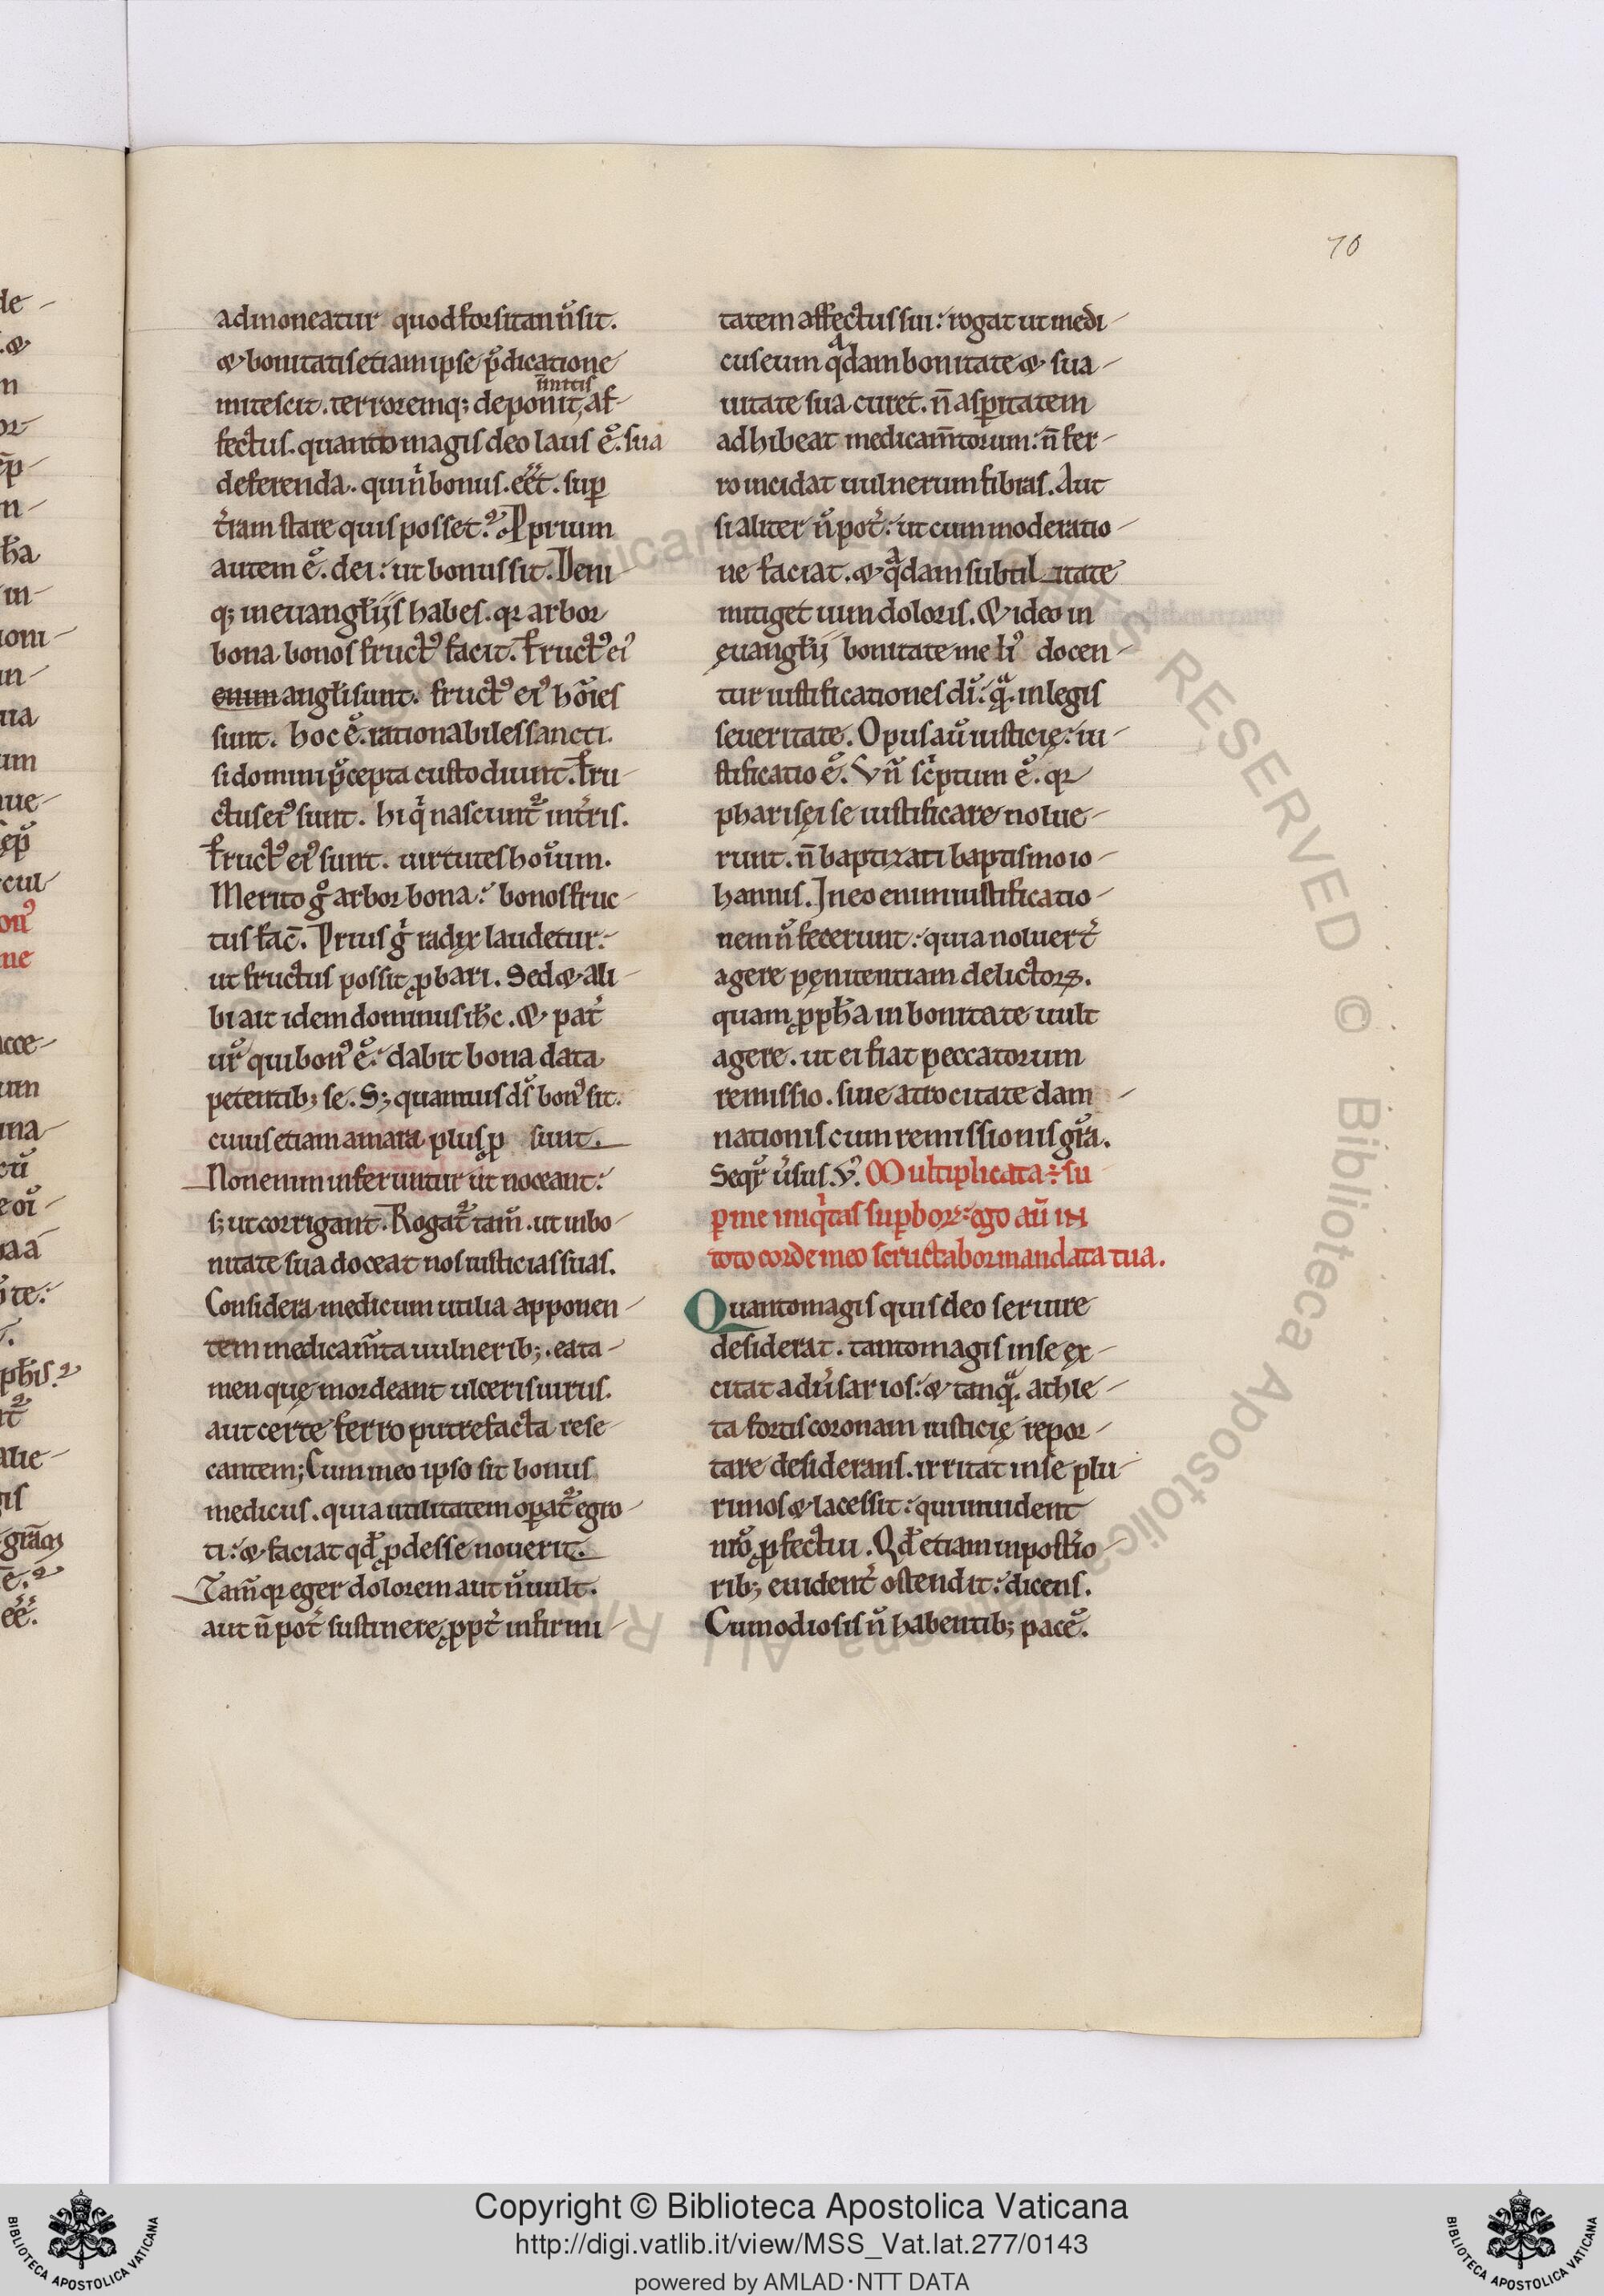 70
admoneatur quod forsitan n̄ sit.
& bonitatis etiam ipse p̄dicatione
mitescit. terroremq; deponit, af-
īmitis
fectus. quanto magis deo laus ē. sua
deferenda. qui n̄ bonus. eēt. sup̱
t̄ram stare quis posset? Ꝓprium
autem ē. dei: ut bonus sit. Deni-
q; in euangłiis habes. qr arbor
bona bonos fructꝰ facit. Fructꝰ eiꝰ
enim angłi sunt. fructꝰ eiꝰ hōies
sunt. hoc ē. rationabiles sancti.
si domini p̄cepta custodiunt. Fru-
ctus eiꝰ sunt. hi qⁱ nascunt᷑ in t̄ris.
Fructꝰ eiꝰ sunt. uirtutes hoīum.
Merito g° arbor bona: bonos fruc-
tus fac̄. Prius gⁱ radix laudetur:
ut fructus possit ꝓbari. Sed & ali-
bi ait idem dominus ih̄c. & pat̄
ur̄ qui bonꝰ ē: dabit bona data
petentib; se. S; quamuis ds̄ bonꝰ sit.
cuius etiam amara plus ꝓ sunt.
Non enim inferuntur ut noceant:
s; ut corrigant. Rogat᷑ tam̄. ut in bo-
nitate sua doceat nos iusticias suas.
Considera medicum utilia apponen-
tem medicam̄ta uulnerib;. ea ta-
men quę mordeant ulceris uirus.
aut certe ferro putrefacta rese-
cantem; Cum in eo ipso sit bonus
medicus. quia utilitatem op̱at᷑ egro-
ti: & faciat qd̄ ꝓdesse nouerit.
Tam̄ qr eger dolorem aut n̄ uult.
aut n̄ pot̄ sustinere, ꝓpt̄ infirmi-
tatem affectus sui: rogat ut medi-
cus eum qᵃdam bonitate & sua-
uitate sua curet. n̄ asp̱itatem
adhibeat medicam̄torum: n̄ fer-
ro incidat uulnerum fibras. Aut
si aliter n̄ pot̄: ut cum moderatio-
ne faciat. & qᵃdam subtilitate
mitiget uim doloris. & ideo in
euangłii bonitate meliꝰ docen-
tur iustificationes dī: qᵃ. in legis
seueritate. Opus aū iusticię: iu-
stificatio ē. Vn̄ sc̄ptum ē. qr
pharisęi se iustificare nolue-
runt. n̄ baptizati baptismo io-
hannis. In eo enim iustificatio-
nem n̄ fecerunt: quia noluer̄t
agere pęnitentiam delictoꝝ.
quam ꝓph̄a in bonitate uult
agere. ut ei fiat peccatorum
remissio. siue atrocitate dam-
nationis cum remissionis gr̄a.
Seqr̄ ūsus. V̄. Multiplicata ÷ su
p̱ me iniqⁱtas sup̱boꝝ: ego aū̄ in
toto corde meo scructabor mandata tua.
Quanto magis quis deo seruire
desiderat. tanto magis in se ex-
citat adūsarios: & tanqᵃ. athle-
ta fortis coronam iusticię repor-
tare desiderans. irritat in se plu-
rimos & lacessit: qui inuident
nr̄o ꝓfectui. Qd̄ etiam in post̄io-
rib; euident̄ ostendit: dicens.
Cum odiosis n̄ habentib; pacē.
Copyright © Biblioteca Apostolica Vaticana
http://digi.vatlib.it/view/MSS_Vat.lat.277/0143
powered by AMLAD·NTT DATA
BIBLIOTECA APOSTOLICA VATICANA
BIBLIOTECA APOSTOLICA VATICANA